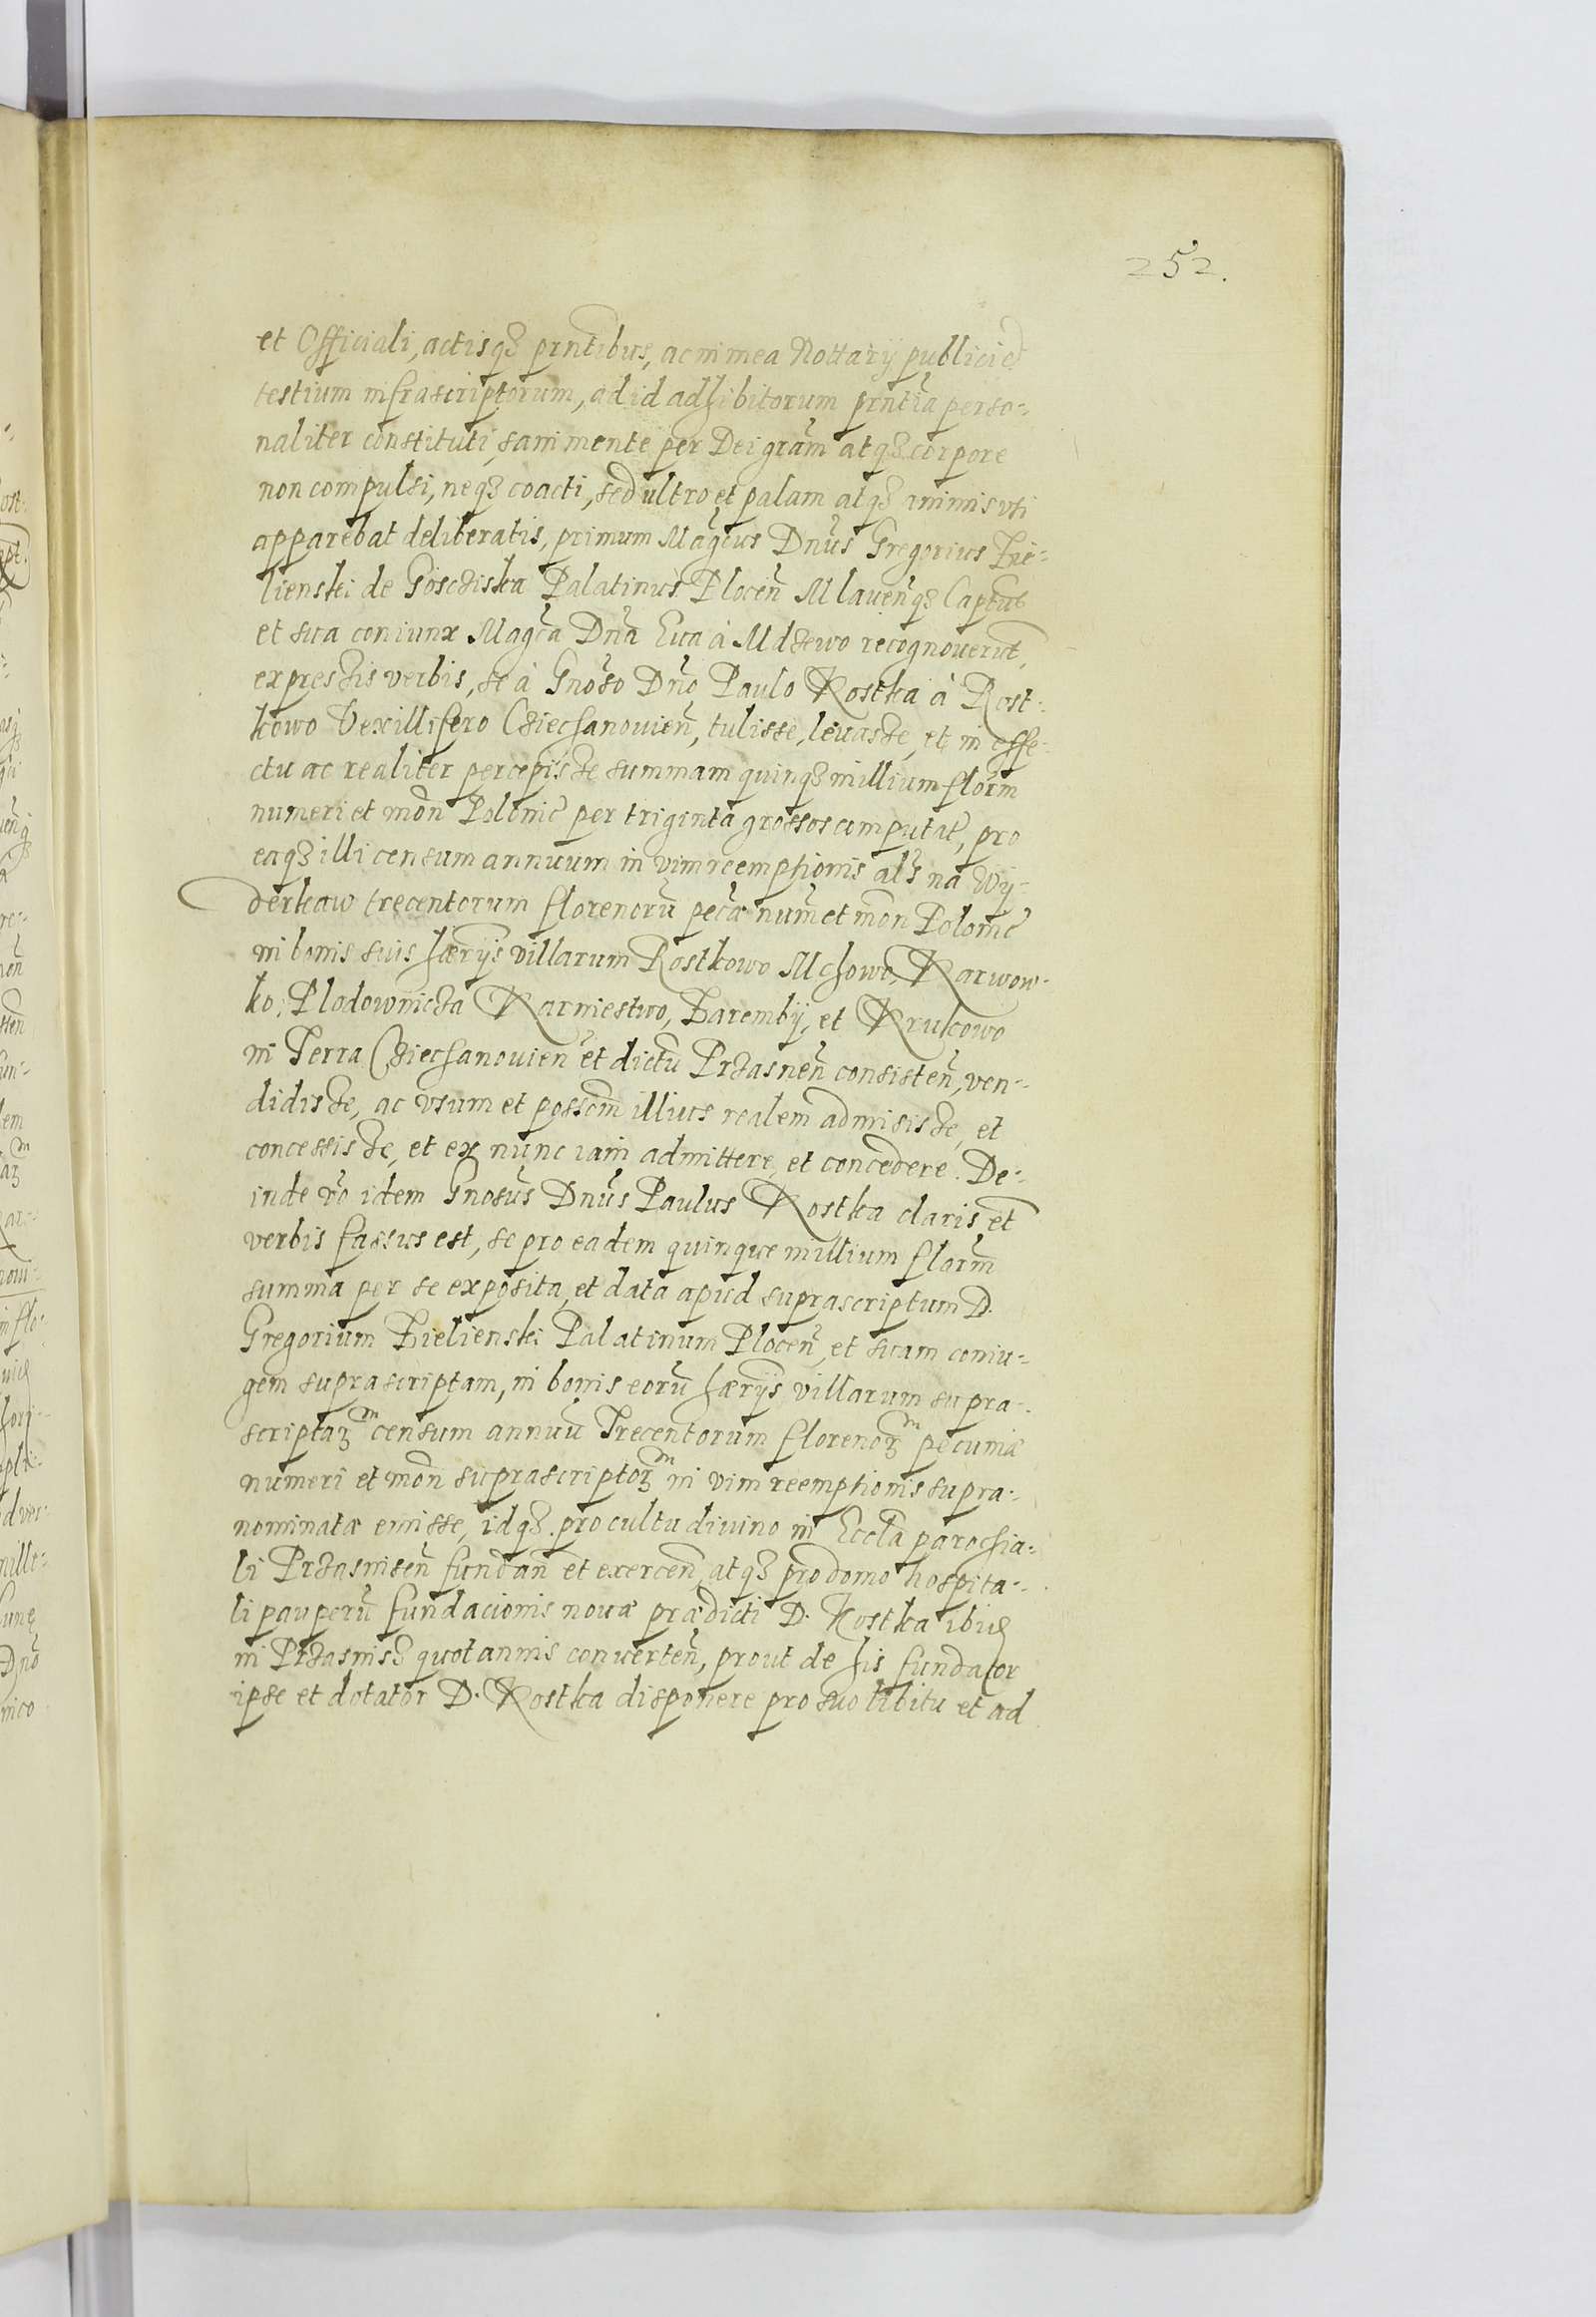 252.
et Officiali, actisqȝ prñtibus, ac in mea Nottarij publici et
testium infrascriptorum, ad id adhibitorum prñtia perso-
naliter constituti, sani mente per Dei grãm atqȝ corpore
non compulsi, neqȝ coacti, sed ultro et palam atqȝ animis vti
apparebat deliberatis, primum Magcus Dnũs Gregorius Zie-
lienski de Goscziska Palatinus Plocen̄ Mlauen̄qȝ Captus
et sua coniunx Magca Dnã Eua à Mdzewo recognouerũt,
expressis verbis, se à Gnõso Dnõ Paulo Kostka à Rost-
kowo Vexillifero Cziechanouien̄, tulisse, leuasse, et in effe-
ctu ac realiter percepisse summam quinqȝ millium florm̃
numeri et mon̄ Polonic̄ per triginta grossos computat̄, pro
eaqȝ illi censum annuum in vim reemptionis als̄ na Wy-
derkaw trecentorum florenorũ pec̃æ num̄ et mon̄ Polonic̄
in bonis suis hærijs villarum Rostkowo Mchowo, Karwow-
ko, Plodownicza Karniestwo, Zaremby, et Krukowo
in Terra Cziechanouien̄ et dictũ Przasnen̄ consisten̄, ven-
didisse, ac vsum et possem̃ illius realem admisisse, et
concessisse, et ex nunc iam admittere, et concedere. De-
inde võ idem Gnosus Dnũs Paulus Kostka claris, et
verbis fassus est, se pro eadem quinque millium florm̃
summa per se exposita, et data apud suprascriptum D.
Gregorium Zielienski Palatinum Plocen̄, et suam coniu-
gem suprascriptam, in bonis eorũ hærijs villarum supra-
scriptaꝝm censum annuũ Trecentorum florenoꝝm pecuniæ
numeri et mon̄ suprascriptoꝝm in vim reemptionis supra-
nominatæ emisse, idqȝ pro cultu diuino in Eccla parochia-
li Przasnisen̄ fundan̄ et exercen̄, atqȝ pro domo hospita-
li pauperũ fundacionis nouæ prædicti D. Kostka ibid
in Przasnisȝ quotannis conuerten̄, prout de his fundator
ipse et dotator D. Kostka disponere pro suo libitu et ad